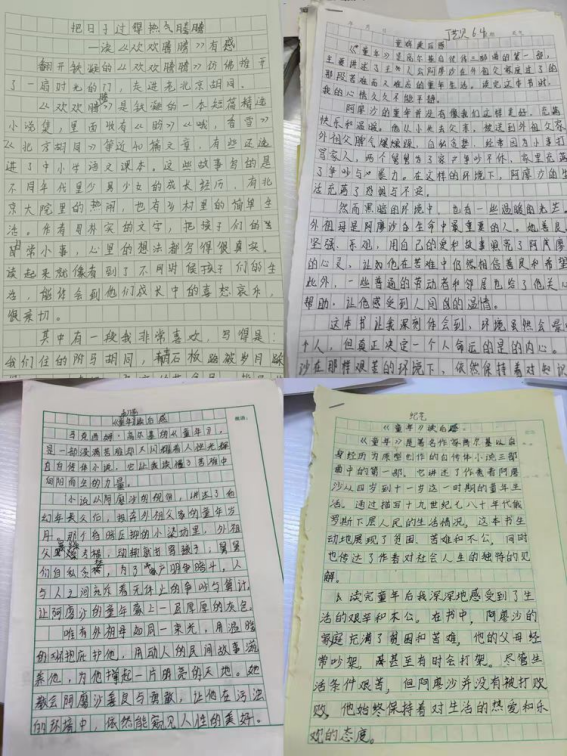 把日子过得热气腾腾
——读《欢欢腾腾》有感
翻开铁凝的《欢欢腾腾》仿佛推开
了一扇时光的门,走进老北京胡同。
《欢欢腾腾》是铁凝的一本短篇精选
小说集,里面收有《盼》《哦,香雪》
《北方胡同》等近
进了中小学语文课本。这些故事写的是
不同年代里少男少女的成长经历,有北
京大院里的热闹,也有乡村里的简单生
活。作者用朴实的文字,把孩子们的
日常小事,心里的想法都写得很真实。
读起来就像看到了不同时候孩子们的生
活,能体会到他们成长中的喜怒哀乐,
很亲切。
其中有一段我非常喜欢,写得是:
我们住的附马胡同,青石板路被岁月
童年读后感
《童年》是高尔基自传体三部曲的第一部,
主要讲述了主人公阿廖沙在外祖父家度过了的
那段苦难而又难忘的童年生活。读完这本书时,
我的心情久久不能平静。
阿廖沙的童年并没有像我们这样美好,充满
快乐和温暖。他从小失去父亲,被送到外祖父家。
外祖父脾气爆燥,自私贪婪,经常因为小事打
骂家人,两个舅舅为了家产争吵不休,家里充满
了争吵与暴力。在这样的环境下,阿廖沙的生
活充满了恐惧与不安。
然而黑暗的环境中,也有一些温暖的光芒。
外祖母是阿廖沙生命中最重要的人。她善良、
坚强、乐观,用自己的爱和故事照亮了阿廖沙
的心灵,让他在苦难中仍然相信善良和希望。
此外,一些普通的劳动者和邻居也给了他关心
帮助,让他感受到人间的温情。
这本书让我深刻体会到,环境虽然会影
个人,但真正决定一个人命运的是的内心。
沙在那样艰苦的环境下,依然保持着对知识
《童年》读后感
马克西姆·高尔基的《童年》,
是一部浸满苦难却又闪耀着人性光辉
的自传体小说,它让我读懂了苦难中
向阳而生的力量。
小说以阿廖沙的视角,讲述了他
幼年丧父后,投奔外祖父家的童年岁
月。那个阴暗压抑的小染坊里,外祖
父
们自私贪婪,为了家产明争暗斗,人
与人之间充斥着无休止的争吵与算计,
让阿廖沙的童年蒙上一层厚厚的灰色。
唯有外祖母如同一束光,用温暖
的怀抱庇护他,用动人的民间故事滋
养他,为他撑起一片明亮的天地。她
教会阿廖沙善良与勇敢,让他在污浊
的环境中,依然能看见人性的美好。
《童年》读后感
《童年》是著名作家高尔基以自
身经历为原型创作的自传体小说三部
曲中的第一部。它讲述了作者看阿廖
沙从四岁到十一岁这一时期的童年生
活。透过描写十九世纪七八十年代俄
罗斯下层人民的生活情况,这本书生
动地展现了贫困、苦难和不公,同时
也传达了作者对社会人生的独特的见
解。
读完童年后我深深地感受到了生
活的艰辛和不公。在书中,阿廖沙的
家庭充满了贫困和苦难,他的父母经
常吵架,甚至有时会打架。尽管生
活条件艰苦,但阿廖沙并没有被打败
败,他始终保持着对生活的热爱和乐
观的态度。